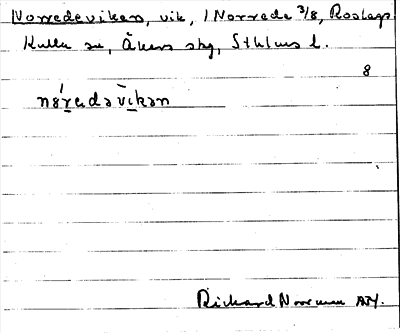 Norredeviken, vik, i Norrede 3/8, Roslags
Kulla sn, Åkers skg, Sthlms l.
8
nǒ́redavìkən
Richard Norrman